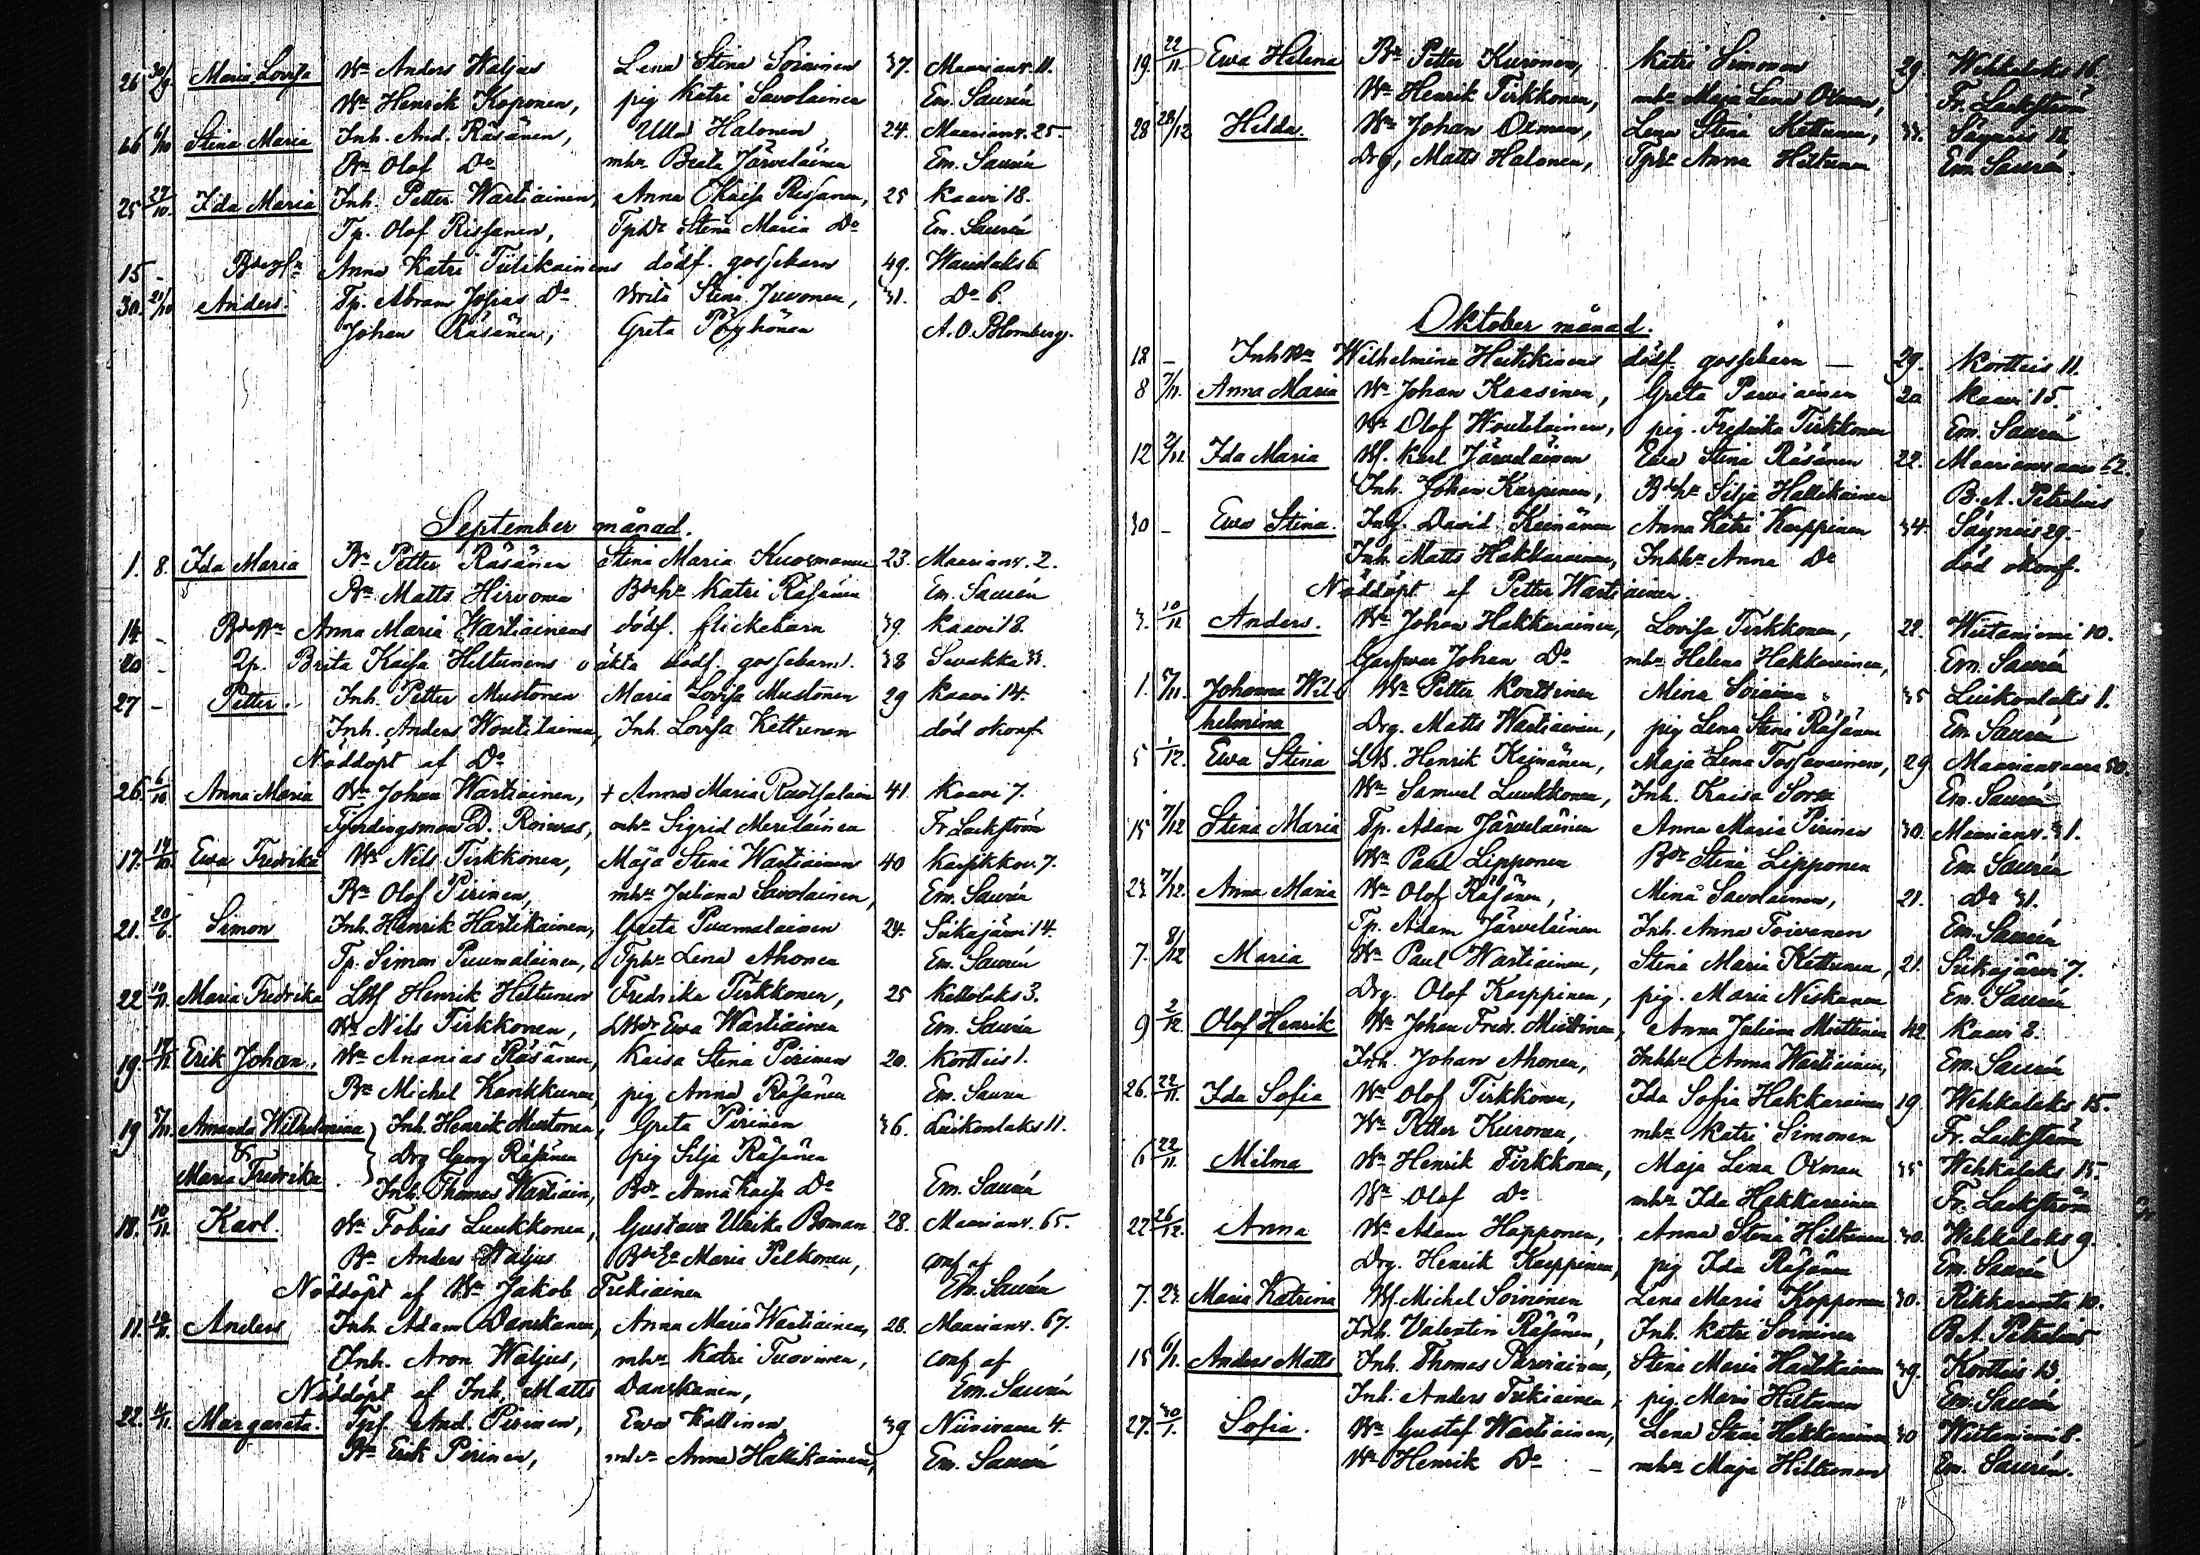 26 30/9 Maria Lovisa Wn Anders Waljus Lena Stina Soininen 37. Maarianv. 11.
Wn Henrik Koponen, pig Katri Savolainen Em. Saurén
26 6/10 Stina Maria Inh. And. Räsänen, Ulla Halonen 24. Maarianv. 25.
Bn Olof Do mhu Beata Järveläinen Em. Saurén
25 27/10. Ida Maria Inh. Petter Wartiainen, Anna Kaisa Rissanen, 25 Kaavi 18.
Tp. Olof Rissanen, Tphu Stina Maria Do Em. Saurén
15 - Anna Katri Tiilikainens dödf. gossebarn 49. Wausilaks 6
30. 21/10 Anders. Tp. Abram Josias Do Brita Stina Juvonen, 31. Do 6.
Johan Räsänen, Greta Pöyhönen A. O. Blomberg.
September månad.
1. 8. Ida Maria Bn Petter Räsänen Stina Maria Kuosmanen 23. Maarianv. 2.
Bn Matts Hirvonen Bdehu Katri Räsänen Em. Saurén
14. - Anna Maria Wartiainens dödf. flickebarn 39. Kaavi 18.
20 - Brita Kaisa Hiltunens oäkta dödf. gossebarn. 38 Sivakka 33.
27 - Petter. Inh. Petter Mustonen Maria Lovisa Mustonen 29 Kaavi 14.
Inh. Anders Woutilainen, Inh. Lovisa Kettunen död okonf.
Nöddöpt af Do
26. 6/10 Anna Maria Wn Johan Wartiainen, + Anna Maria Rautsalain 41. Kaavi 7.
Fjerdingsman D. Roivas, mhu Sigrid Meriläinen Fr. Lackström
17. 14/10. Ewa Fredrika Wn Nils Tirkkonen, Maja Stina Wartiainen 40 Karsikkov. 7.
Bn Olof Pirinen, mhu Juliana Savolainen, Em. Saurén
21. 20/6. Simon Inh. Henrik Hartikainen, Greta Puumalainen 24. Siikajärvi 14.
Tp. Simon Puumalainen, Tphu Lena Ahonen Em. Saurén
22 10/11. Maria Fredrika Henrik Hiltunen Fredrika Tirkkonen, 25 Kettolaks 3.
Wn Nils Tirkkonen, Ewa Wartiainen Em. Saurén
19. Erik Johan. Wn Ananias Räsänen, Kaisa Stina Pirinen 20. Kortteis 1.
Bn Michel Kankkunen, pig Anna Räsänen Em. Saurén
19 Amanda Wilhelmina Inh. Henrik Mustonen, Greta Pirinen 36. Luikonlaks 11.
& Drg Georg Räsänen pig Silja Räsänen
Maria Fredrika. Inh. Thomas Wartiain, Anna Kaisa Do Em. Saurén
18. 10/11. Karl. Wn Tobias Luukkonen, Gustava Ulrika Boman 28. Maarianv. 65.
Bn Anders Waljus Maria Pelkonen, conf af
Nöddöpt af Wn Jakob Tukiainen Em. Saurén
11. Anders Inh. Adam Danskanen, Anna Maria Wartiainen, 28. Maarianv. 67.
Inh. Aron Waljus, mhu Katri Tuovinen, conf af
Nöddöpt af Inh. Matts Danskanen, Em. Saurén
22. Margareta. And. Pirinen, Ewa Kallinen 39 Niinivaara 4.
Bn Erik Pirinen, mhu Anna Hallikainen, Em. Saurén
19. 22/11. Ewa Helena Bn Petter Kuronen, Katri Simonen 29. Wehkalaks 16.
Wn Henrik Tirkkonen, mhu Maja Lena Oxman, Fr. Lackström
28 28/12 Hilda. Wn Johan Oxman, Lena Stina Kettunen, 33. Säyneis 11
Drg, Matts Halonen, Tphu Anna Hiltunen Em. Saurén.
Oktober månad.
18 - Wilhelmina Heikkinens dödf. gossebarn - 29. Kortteis 11.
8 7/11. Anna Maria Wn Johan Kaasinen, Greta Parviainen 20 Kaavi 15.
Wn Olof Woutilainen, pig. Fredrika Tirkkonen Em. Saurén
12 2/11 Ida Maria Karl Järveläinen Ewa Stina Räsänen 22. Maarianvaara 62.
Inh. Johan Karpinen, Silja Hallikainen B. A. Petrelius
30 - Ewa Stina. David Keinänen Anna Katri Karppinen 34. Säyneis 29.
Inh. Matts Hakkarainen, Inhhu Anna Do död okonf.
Nöddöpt af Petter Wartiainen.
3. 10/11 Anders. Wn Johan Hakkarainen, Lovisa Tirkkonen, 22. Wiitaniemi 10.
Johan Do mhu Helena Hakkarainen, Em. Saurén
1. 5/11. Johanna Wil- Wn Petter Korttinen Mina Soininen 35 Luikonlaks 1.
helmina Drg. Matts Wartiainen, pig Lena Stina Räsänen Em. Saurén
5 1/12. Ewa Stina Henrik Keinänen, Maja Lena Tossavainen, 29. Maarianvaara 50.
Wn Samuel Luukkonen, Inh. Kaisa Em. Saurén
15 7/12 Stina Maria Tp. Adam Järveläinen Anna Maria Pirinen 30. Maarianv. 31.
Wn Paul Lipponen Stina Lipponen Em. Saurén
23 7/12. Anna Maria Wn Olof Räsänen, Mina Savolainen, 21. Do 31.
Tp. Adam Järveläinen Inh. Anna Toivanen Em. Saurén
7. 8/12 Maria Wn Paul Wartiainen, Stina Maria Kettunen, 21. Siikajärvi 7.
Drg. Olof Karppinen, pig. Maria Niskanen Em. Saurén
9 2/12 Olof Henrik Wn Johan Fredr. Miettinen, Anna Juliana Miettinen 42. Kaavi 8.
Inh. Johan Ahonen, Inhhu Anna Wartiainen, Em. Saurén
26. 22/11. Ida Sofia Wn Olof Tirkkonen, Ida Sofia Hakkarainen 19 Wehkalaks 15.
Wn Petter Kuronen, mhu Katri Simonen Fr. Lackström
6 22/11. Milma Wn Henrik Tirkkonen, Maja Lena Oxman 35 Wehkalaks 15.
Wn Olof Do mhu Ida Hakkarainen Fr. Lackström
22 26/12. Anna Wn Adam Happonen, Anna Stina Hiltunen 30. Wehkalaks 9.
Drg. Henrik Karppinen, pig Ida Räsänen Em. Saurén
7. 23. Maria Katrina Michel Soininen Lena Maria Kopponen 30. Rikkaranta 10.
Inh. Valentin Räsänen, Inh. Katri Soininen B. A. Petrelius
15 6/1. Anders Matts Inh. Thomas Parviainen, Stina Maria Hartikainen 39. Kortteis 13.
Inh. Anders Tukiainen, pig. Maria Hiltunen Em. Saurén
27. 30/1. Sofia. Wn Gustaf Wartiainen, Lena Stina Hakkarainen 30 Wiitaniemi 8.
Wn Henrik Do - mhu Maja Hiltunen Em. Saurén.